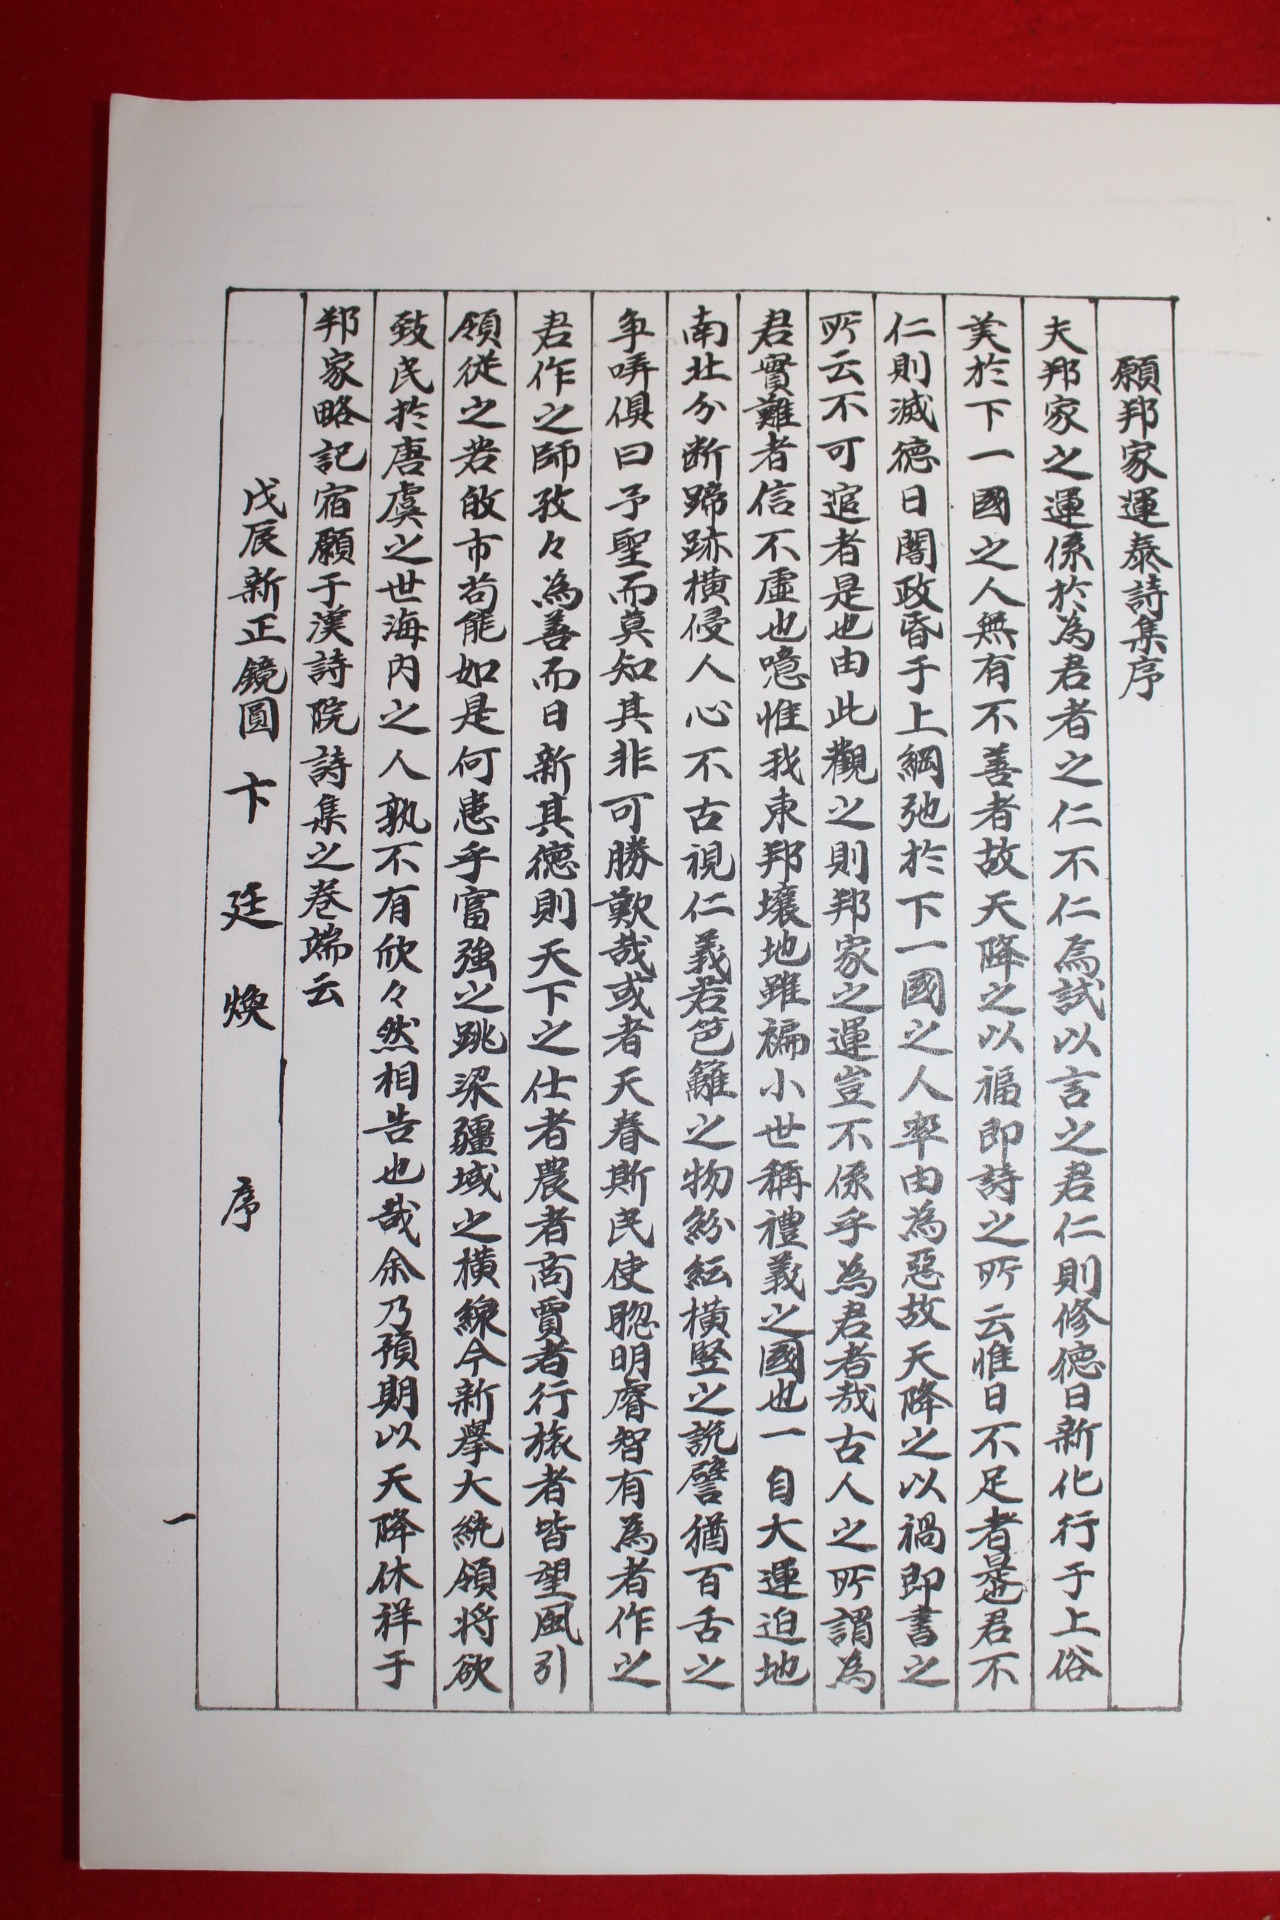 願邦家運泰詩集序
夫邦家之運係於為君者之仁不仁焉試以言之君仁則修德日新化行于上俗
美於下一國之人無有不善者故天降之以福即詩之所云惟日不足者是也君不
仁則滅德日闇政昏于上綱弛於下一國之人率由為惡故天降之以禍即書之
所云不可逭者是也由此觀之則邦家之運豈不係乎為君者哉古人之所謂為
君實難者信不虛也噫惟我東邦壤地雖褊小世稱禮義之國也一自大運迫地
南北分斷蹄跡橫侵人心不古視仁義若笆籬之物紛紜橫竪之說譬猶百舌之
争哢俱曰予聖而莫知其非可勝歎哉或者天眷斯民使聰明睿智有為者作之
君作之師孜々為善而日新其德則天下之仕者農者商賈者行旅者皆望風引
領從之若㪉市苟能如是何患乎富強之跳梁疆域之橫線今新擧大統領將欲
致民於唐虞之世海內之人孰不有欣々然相告也哉余乃預期以天降休祥于
邦家略記宿願于漢詩院詩集之卷端云
戊辰新正鏡圓 卞廷煥 序
一